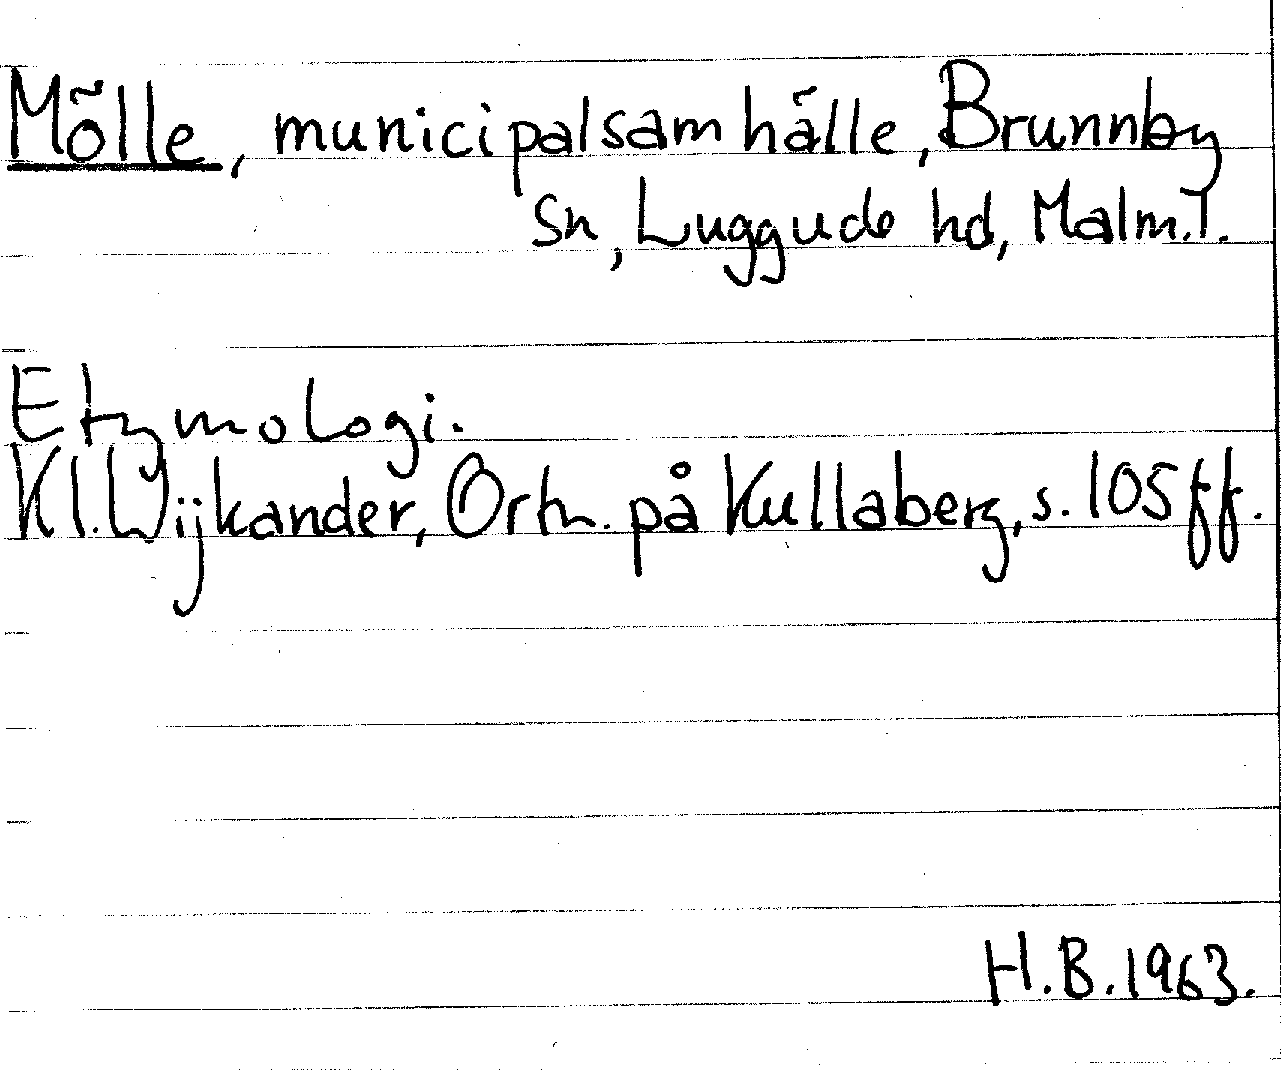 Mölle, municipalsamhälle, Brunnby
sn, Luggude hd, Malm.l.
Etymologi.
Kl. Wijkander, Ortn. på Kullaberg, s. 105 ff.
H.B. 1963.